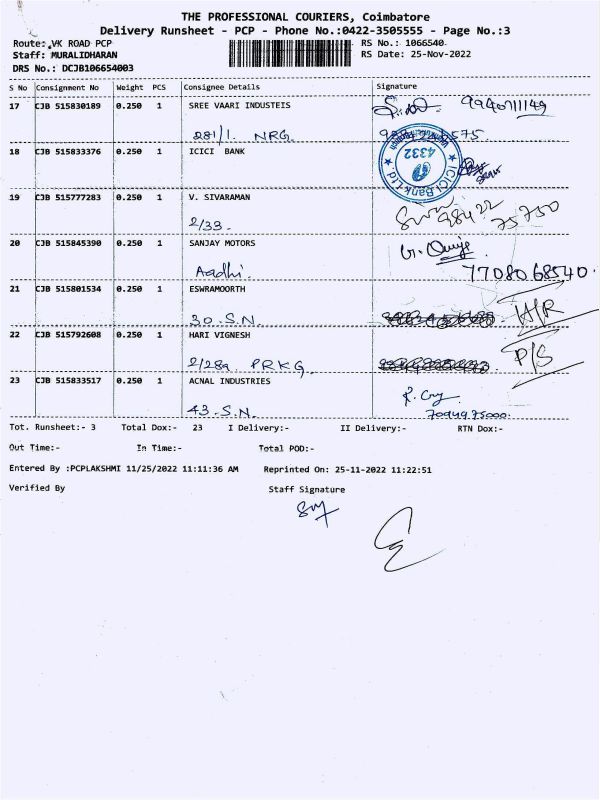 THE PROFESSIONAL COURIERS, Coimbatore
Delivery Runsheet - PCP - Phone No.:0422-3505555 - Page No.:3
Route: VK ROAD PCP
RS No.: 1066540
Staff: MURALIDHARAN
RS Date: 25-Nov-2022
DRS No.: DCJB106654003
S No Consignment No Weight PCS Consignee Details Signature
17 CJB 515830189 0.250 1 SREE VAARI INDUSTEIS 9940711149
281/1. NRG.
18 CJB 515833376 0.250 1 ICICI BANK
4332
ICICI Bank Ltd
19 CJB 515777283 0.250 1 V. SIVARAMAN
2/33. 98422 75750
20 CJB 515845390 0.250 1 SANJAY MOTORS
Aadhi. 7708068540.
21 CJB 515801534 0.250 1 ESWRAMOORTH
30. S.N.
22 CJB 515792608 0.250 1 HARI VIGNESH
2/28a PRKG. P/S
23 CJB 515833517 0.250 1 ACNAL INDUSTRIES
43. S.N.
Tot. Runsheet:- 3 Total Dox:- 23 I Delivery:- II Delivery:- RTN Dox:-
Out Time:- In Time:- Total POD:-
Entered By :PCPLAKSHMI 11/25/2022 11:11:36 AM Reprinted On: 25-11-2022 11:22:51
Verified By Staff Signature